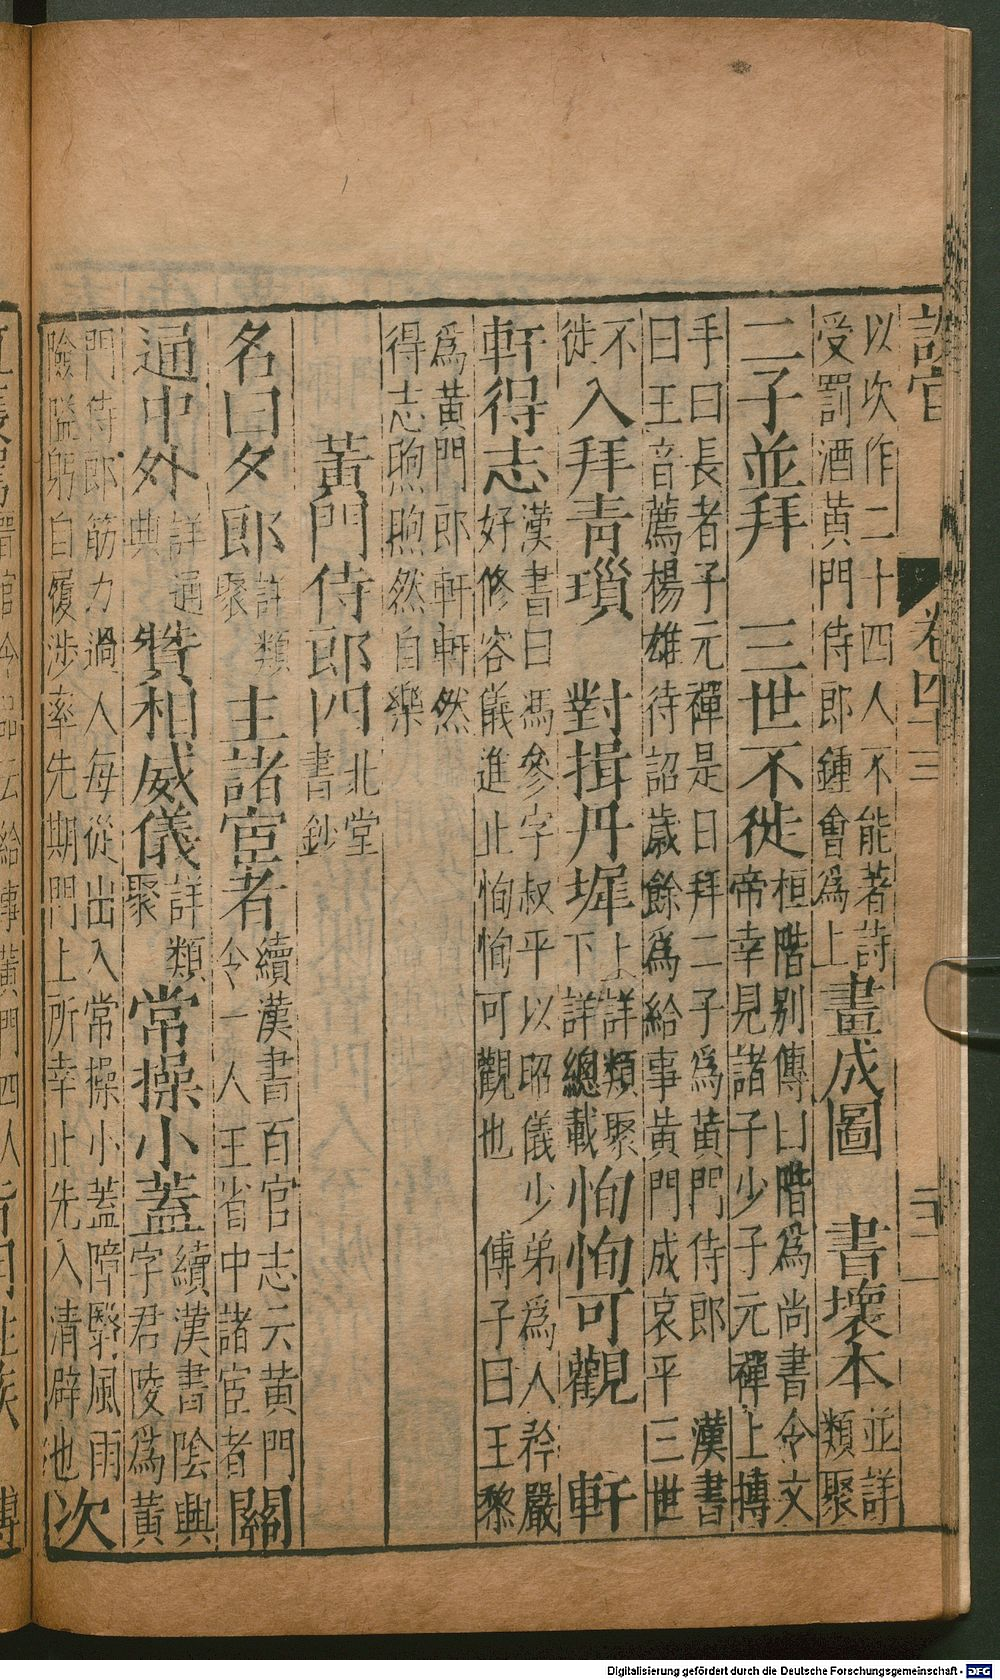 設官 卷四十三 三十一
以坎作二十四人不能著詩
受罰酒黃門侍郎鍾會為上
畫成圖 書壞本
並詳
類聚
二子並拜 三世不徙
桓階別傳曰階為尚書令文
帝幸見諸子少子元禪上搏
手曰長者子元禪是日拜二子為黃門侍郎 漢書
曰王音薦楊雄待詔歲餘為給事黃門成哀平三世
不
徙
入拜青瑣 對揖丹墀
上詳類聚
下詳總載
恂恂可觀 軒
軒得志
漢書曰馮參字叔平以昭儀少弟為人矜嚴
好修容儀進止恂恂可觀也 傅子曰王黎
為黃門郎軒軒然
得志煦煦然自樂
黃門侍郎四
北堂
書鈔
名曰夕郎
詳類
聚
主諸宦者
續漢書百官志云黃門
令一人主省中諸宦者
關
通中外
詳通
典
贊相威儀
詳類
聚
常操小蓋
續漢書陰興
字君陵為黃
門侍郎筋力過人每從出入常操小蓋障翳風雨
險隘躬自履涉率先期門上所幸止先入清辟也
次
Digitalisierung gefördert durch die Deutsche Forschungsgemeinschaft - DFG